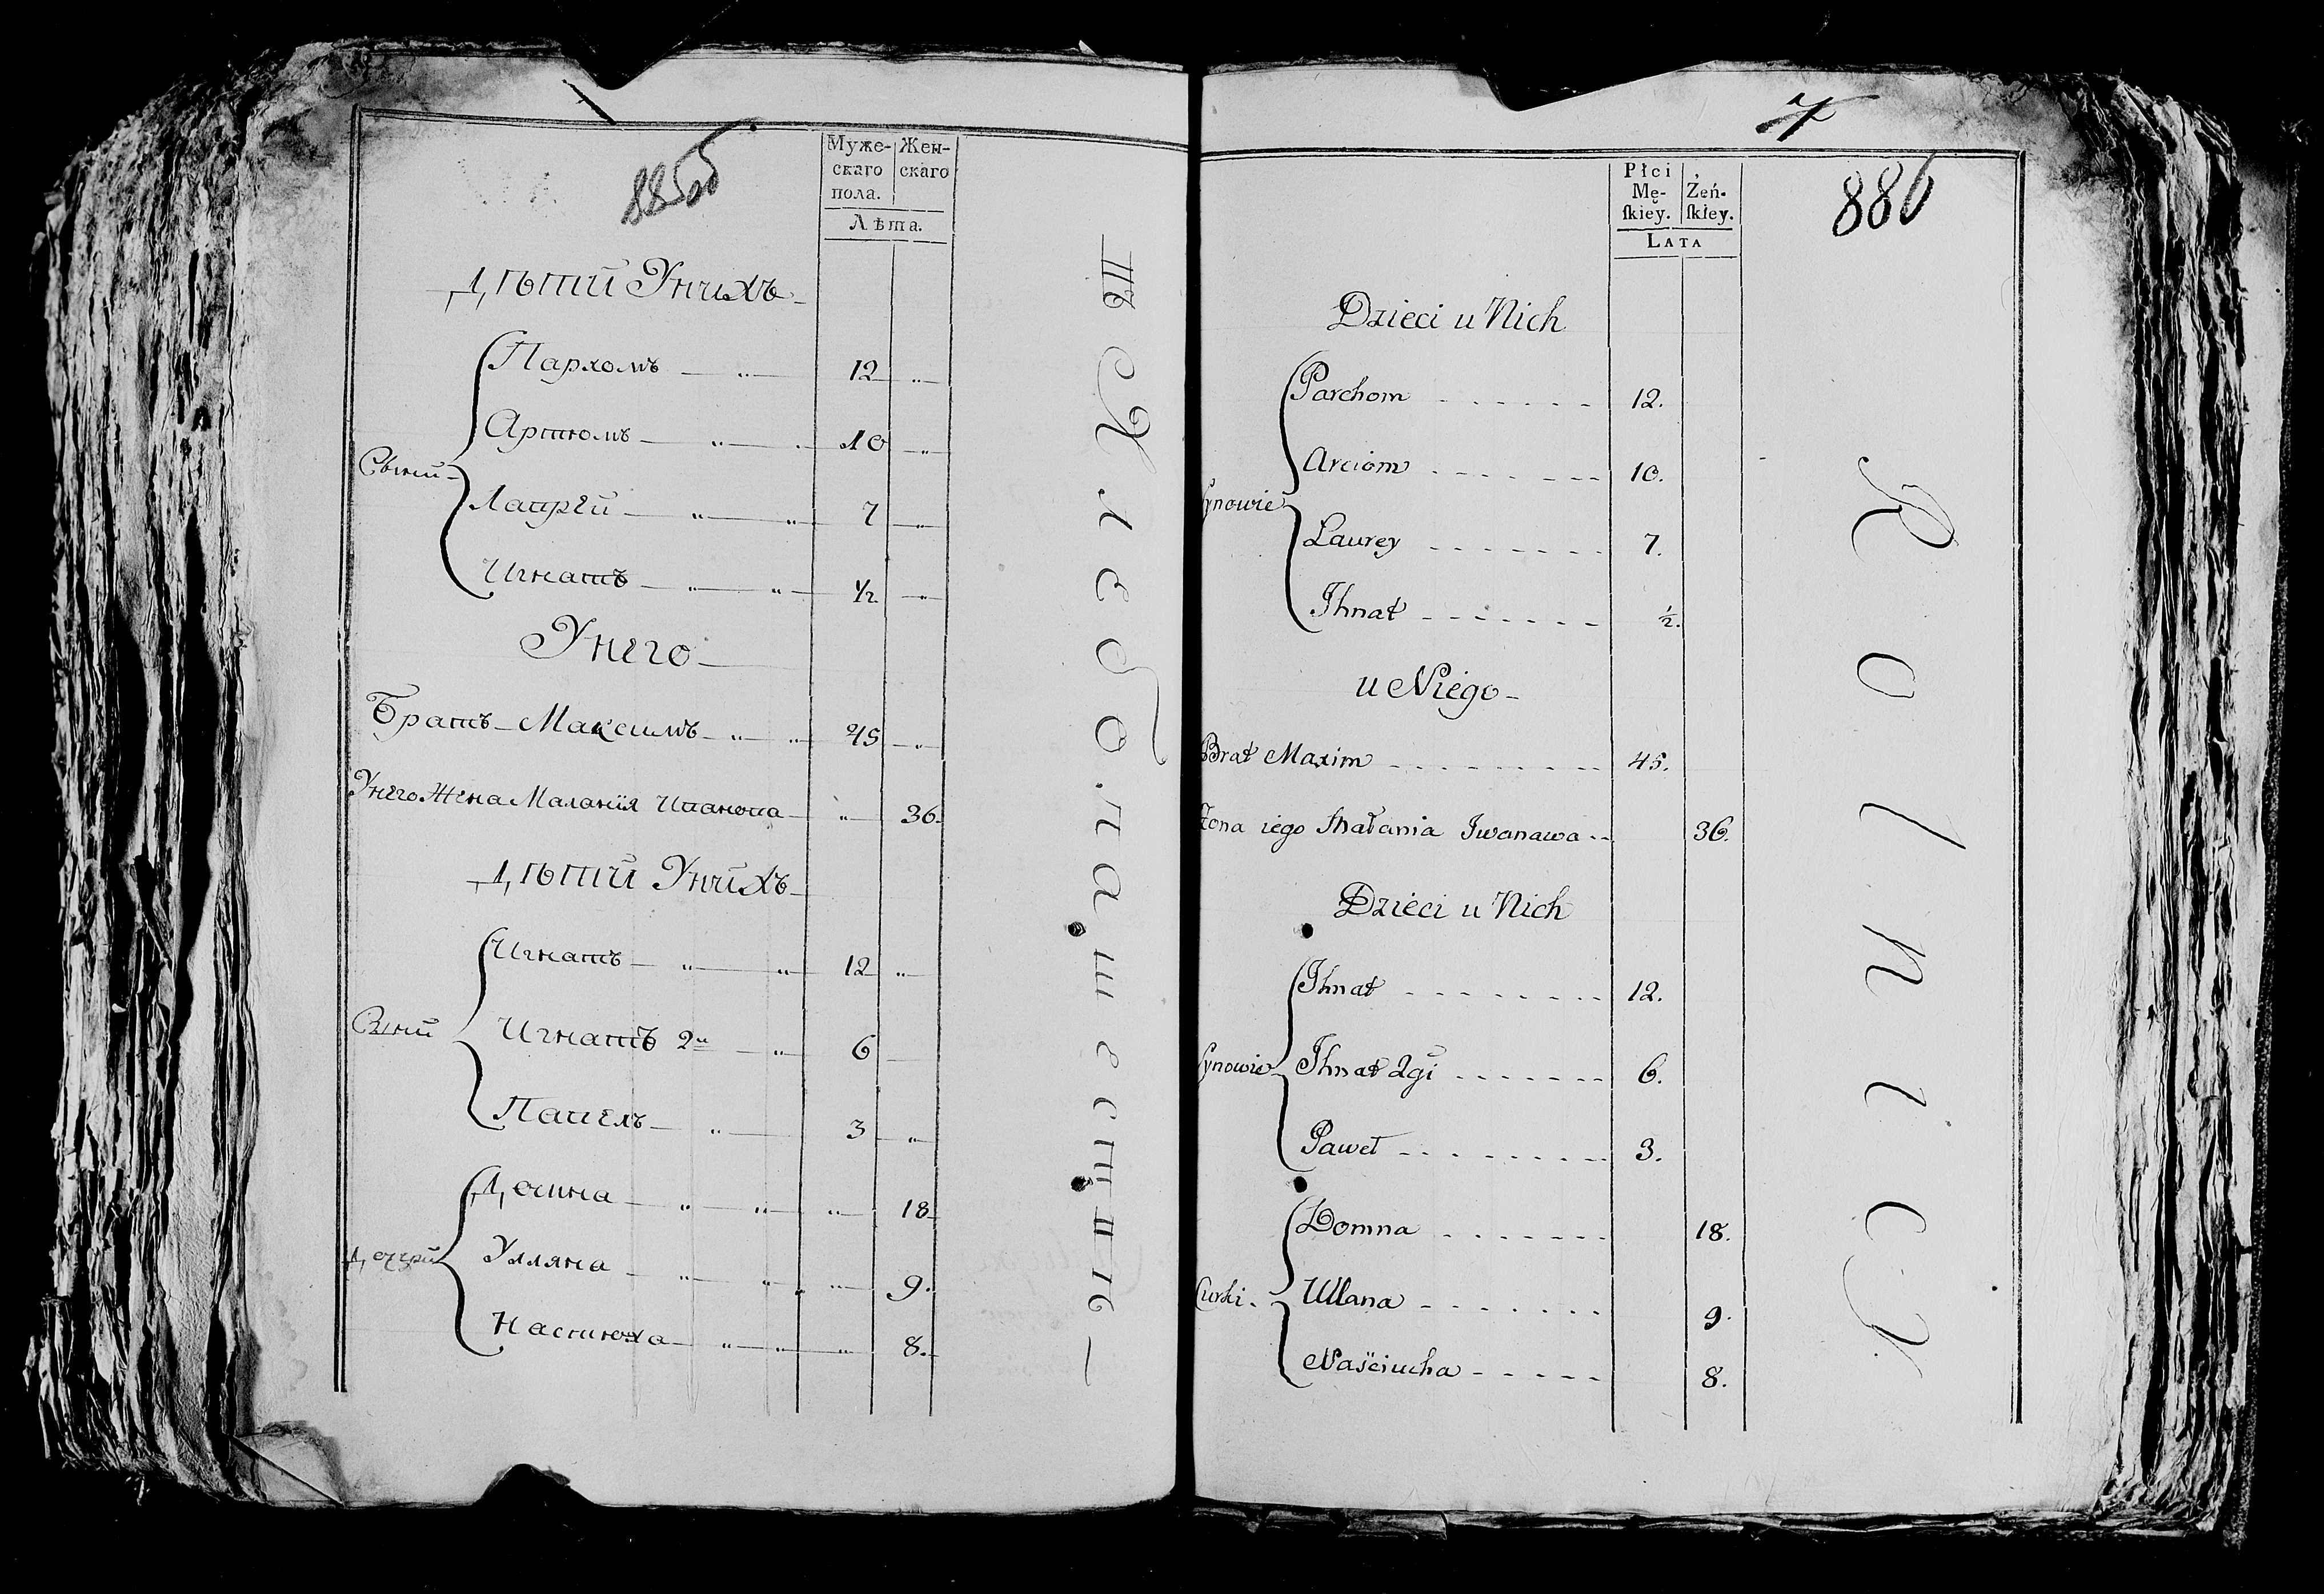 885об
Муже-
скаго
пола.
Жен-
скаго
Лѣта.
Дѣти У нихъ
Пархомъ 12
Артюмъ 10
Сыни
Лаврей 7
Игнатъ 1/2
У него
Братъ Максимъ 45
У него Жена Маланія Иванова 36.
Дѣти У нихъ
Игнатъ 12
Сыни Игнатъ 2й 6
Павелъ 3
Домна 18
Дочери Улляна 9.
Настюха 8.
Хлебопашествъ
7
886
Płci
Mę-
ſkiey.
Żeń-
ſkiey.
Lata
Dzieci u Nich
Parchom 12.
Arciom 10.
Synowie
Laurey 7.
Ihnat 1/2.
u Niego
Brat Maxim 45.
Żona iego Małania Iwanawa 36.
Dzieci u Nich
Ihnat 12.
Synowie Ihnat 2gi 6.
Paweł 3.
Domna 18.
Curki. Ullana 9.
Naściucha 8.
Rolnicy